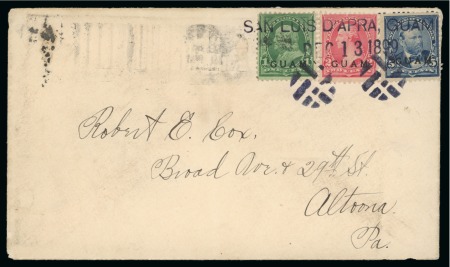 SAN LUIS D'APRA, GUAM
DEC 13 1899
GUAM GUAM GUAM
Robert E. Cox,
Broad Ave. & 29th St.
Altoona
Pa.